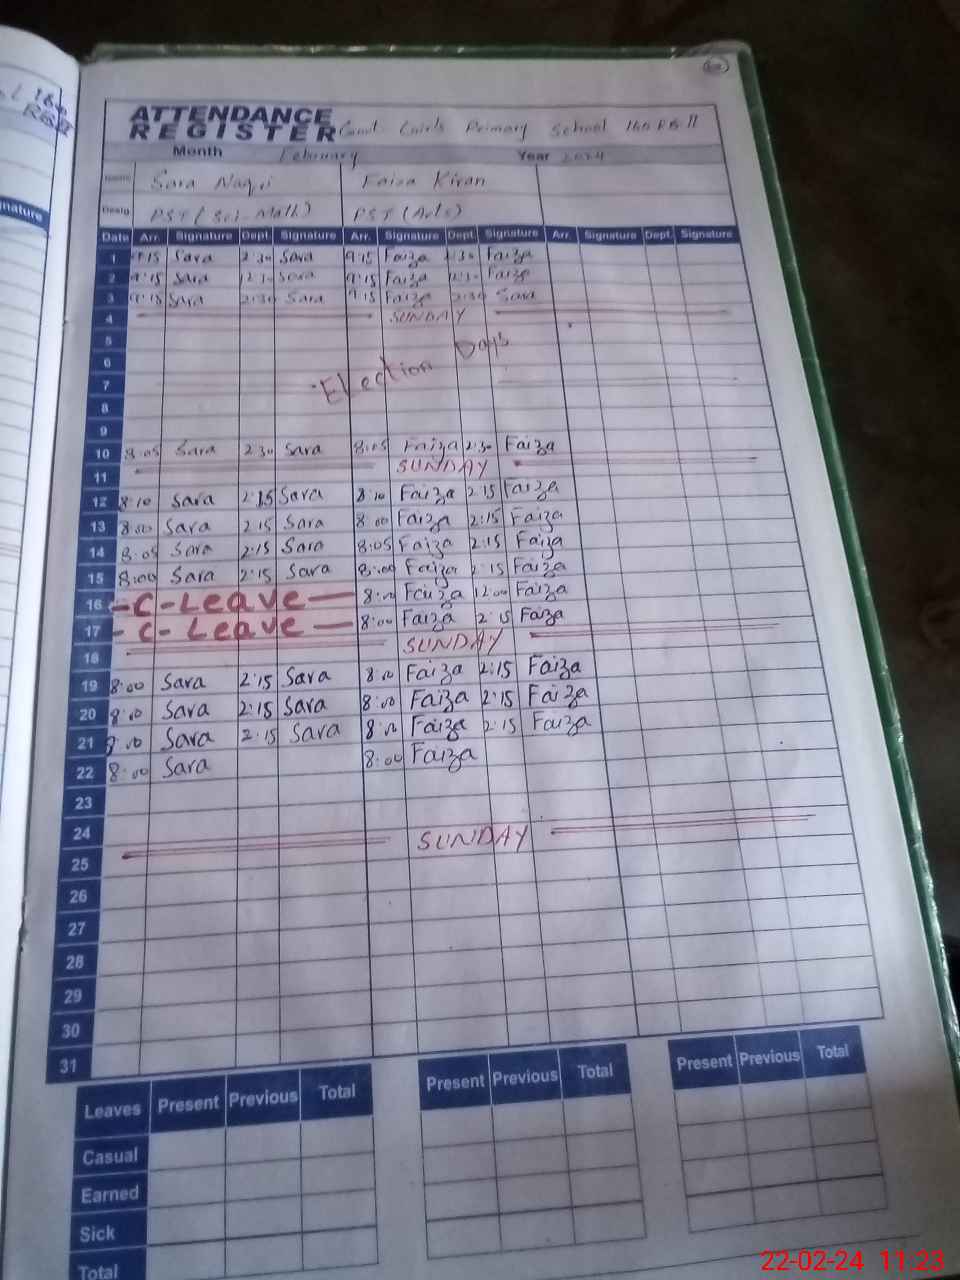 160
RB II
nature
ATTENDANCE
REGISTER Govt. Girls Primary School 160 RB II
Month February Year 2024
Name Sara Naqvi Faiza Kiran
Desig. PST (Sci-Math) PST (Arts)
Date Arr. Signature Dept. Signature Arr. Signature Dept. Signature Arr. Signature Dept. Signature
1 9:15 Sara 2:30 Sara 9:15 Faiza 2:30 Faiza
2 9:15 Sara 12:30 Sara 9:15 Faiza 12:30 Faiza
3 9:15 Sara 2:30 Sara 9:15 Faiza 2:30 Sara
4 SUNDAY
5
6 Election Days
7
8
9
10 8:05 Sara 2:30 Sara 8:05 Faiza 2:30 Faiza
11 SUNDAY
12 8:10 Sara 2:15 Sara 8:10 Faiza 2:15 Faiza
13 8:00 Sara 2:15 Sara 8:00 Faiza 2:15 Faiza
14 8:05 Sara 2:15 Sara 8:05 Faiza 2:15 Faiza
15 8:00 Sara 2:15 Sara 8:00 Faiza 2:15 Faiza
16 -C-Leave- 8:00 Faiza 12:00 Faiza
17 -C-Leave- 8:00 Faiza 2:15 Faiza
18 SUNDAY
19 8:00 Sara 2:15 Sara 8:00 Faiza 2:15 Faiza
20 8:00 Sara 2:15 Sara 8:00 Faiza 2:15 Faiza
21 8:00 Sara 2:15 Sara 8:00 Faiza 2:15 Faiza
22 8:00 Sara 8:00 Faiza
23
24
25 SUNDAY
26
27
28
29
30
31
Leaves Present Previous Total Present Previous Total Present Previous Total
Casual
Earned
Sick
Total
22-02-24 11:23